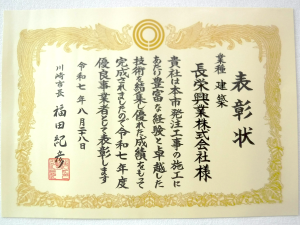 表彰状
業種 建築
長栄興業株式会社様
貴社は本市発注工事の施工に
あたり豊富な経験と卓越した
技術を結集し優れた成績をもって
完成されましたので令和七年度
優良事業者として表彰します
令和七年八月二十八日
川崎市長 福田紀彦